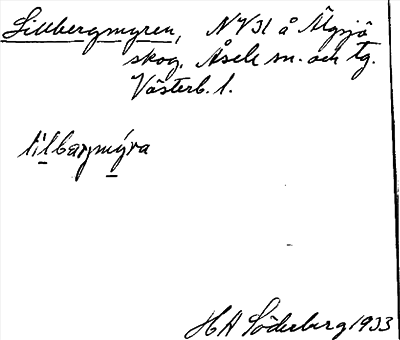 Lillbergmyren, NV31 å Älgsjö
skog, Åsele sn. och tg.
Västerb. l.
lilbærmýra
H A Söderberg 1933